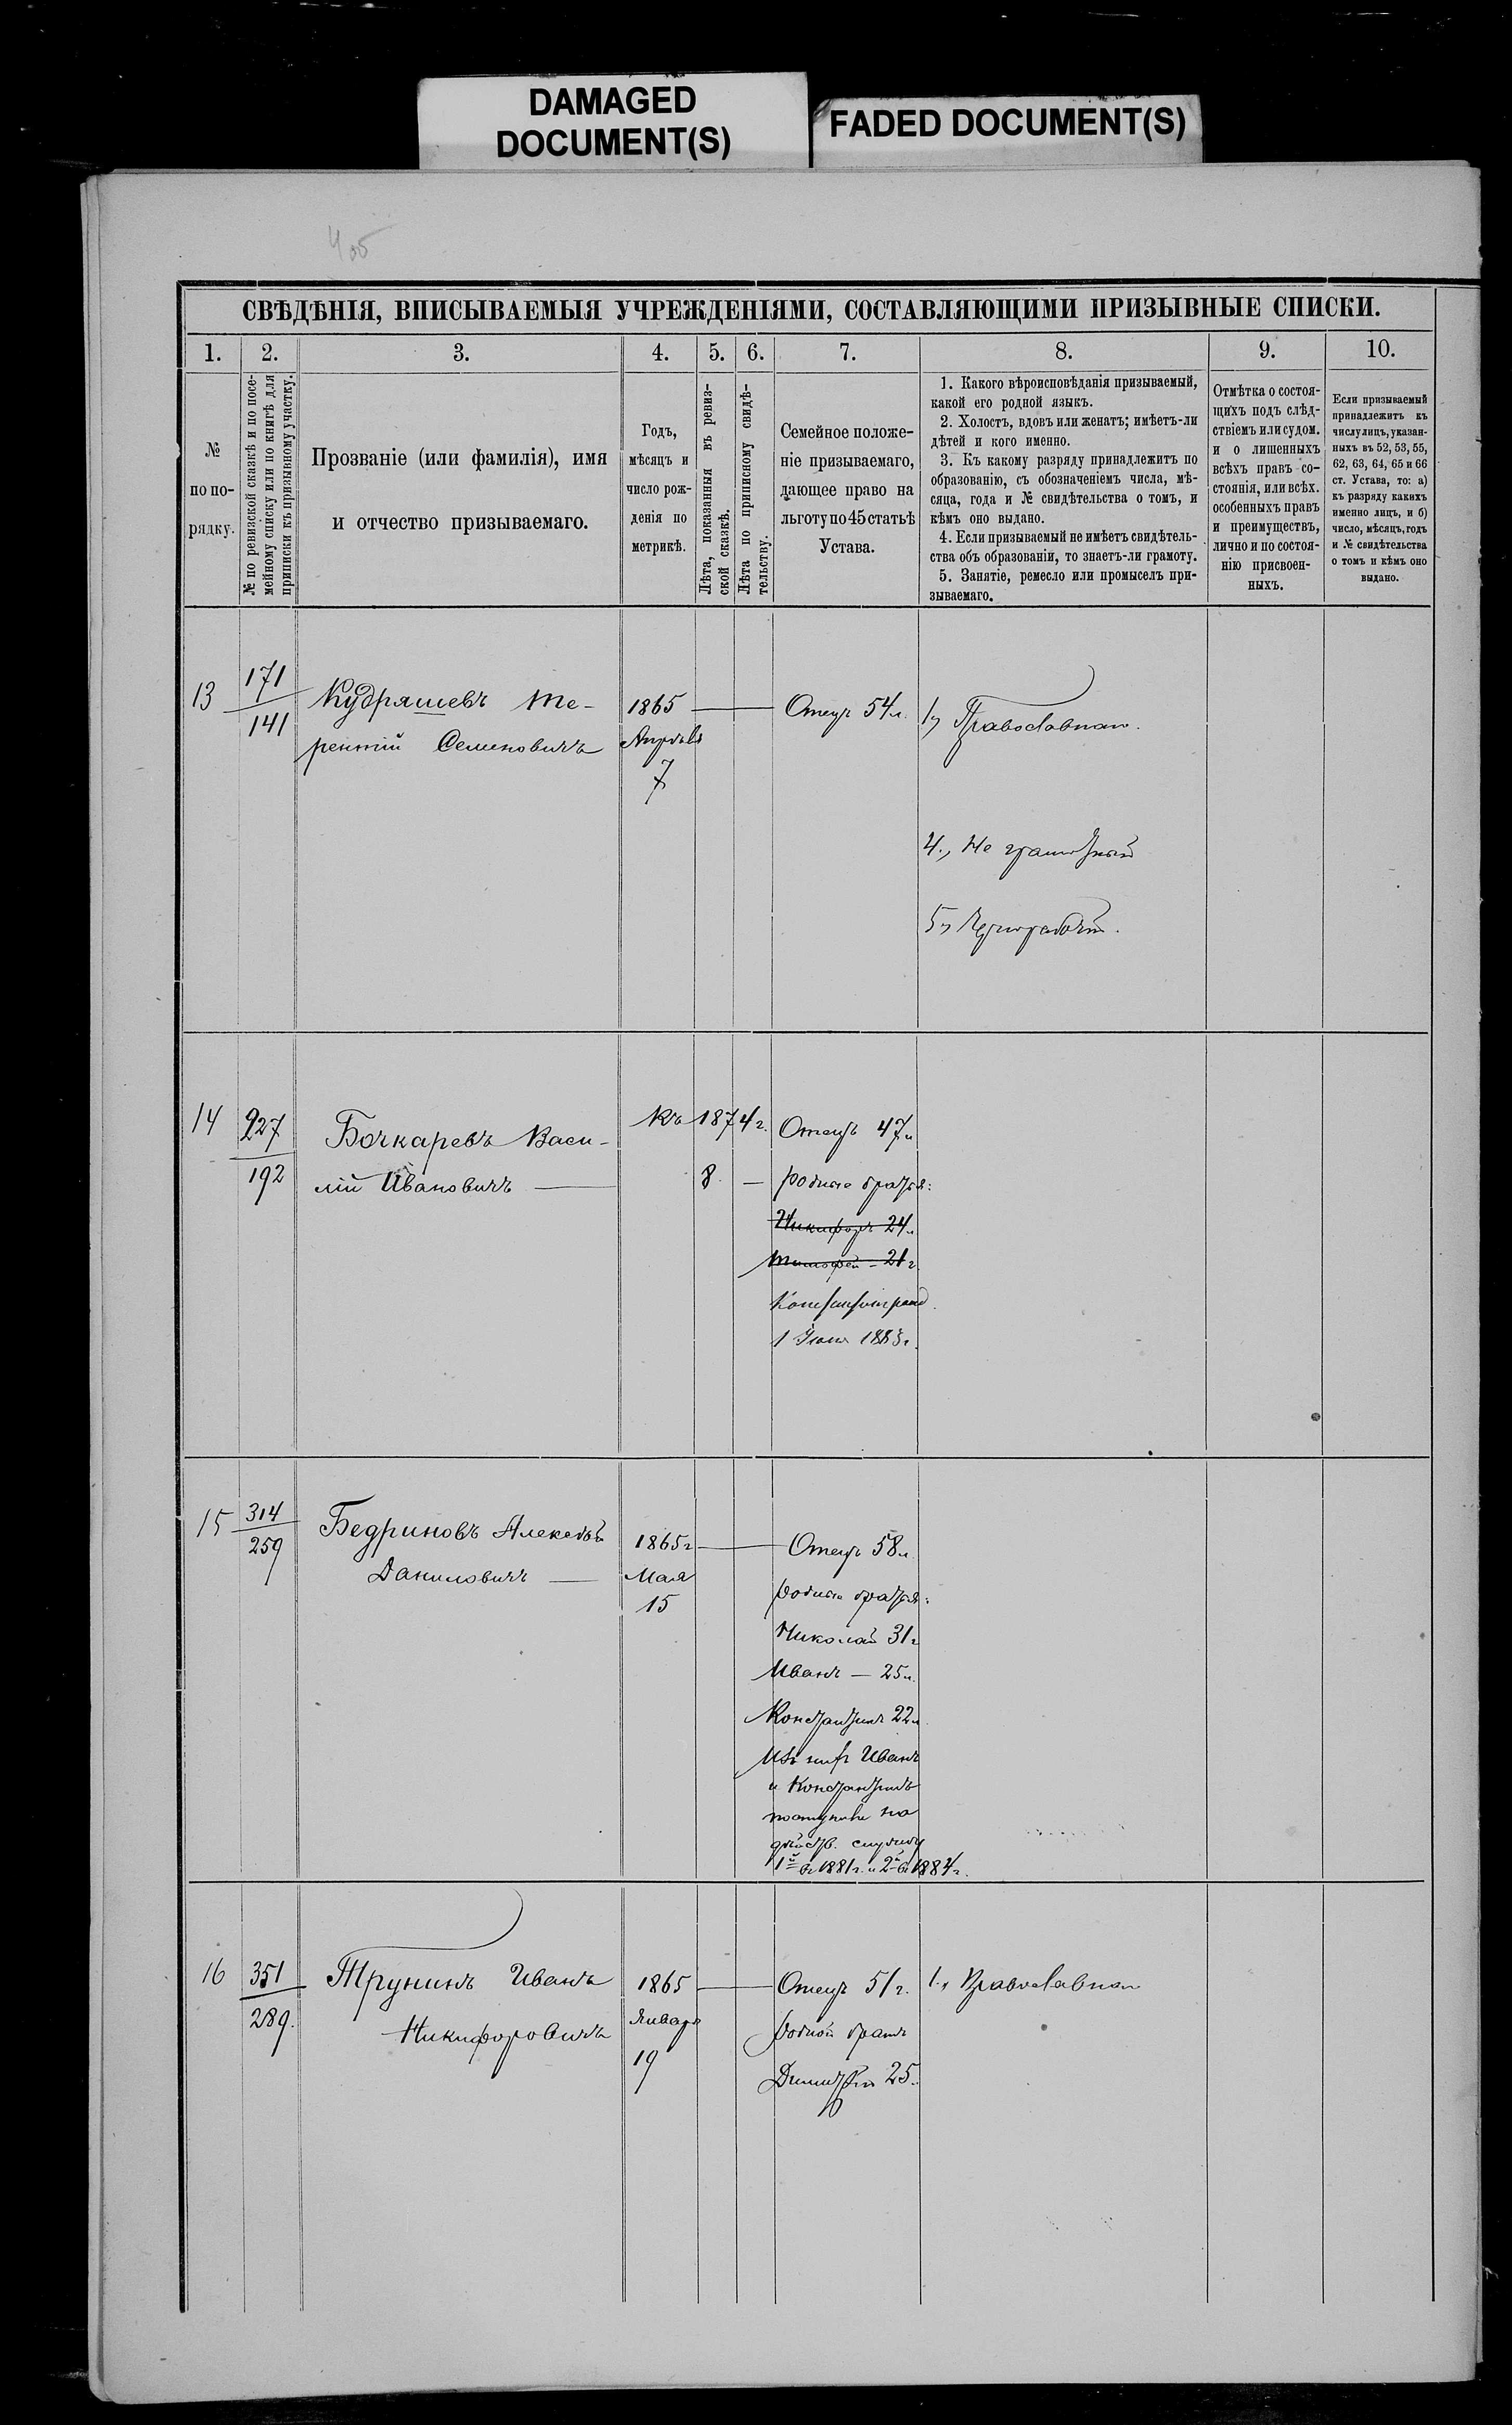 DAMAGED
DOCUMENT(S)
FADED DOCUMENT(S)
СВѢДѢНІЯ, ВПИСЫВАЕМЫЯ УЧРЕЖДЕНІЯМИ, СОСТАВЛЯЮЩИМИ ПРИЗЫВНЫЕ СПИСКИ.
1.
2.
3.
4.
5.
6.
7.
8.
9.
10.
№
по по-
рядку.
№ по ревизской сказкѣ и по посе-
мейному списку или по книгѣ для
приписки къ призывному участку.
Прозваніе (или фамилія), имя
и отчество призываемаго.
Годъ,
мѣсяцъ и
число рож-
денія по
метрикѣ.
Лѣта, показанныя въ ревиз-
ской сказкѣ.
Лѣта по приписному свидѣ-
тельству.
Семейное положе-
ніе призываемаго,
дающее право на
льготу по 45 статьѣ
Устава.
1. Какого вѣроисповѣданія призываемый,
какой его родной языкъ.
2. Холостъ, вдовъ или женатъ; имѣетъ-ли
дѣтей и кого именно.
3. Къ какому разряду принадлежитъ по
образованію, съ обозначеніемъ числа, мѣ-
сяца, года и № свидѣтельства о томъ, и
кѣмъ оно выдано.
4. Если призываемый не имѣетъ свидѣтель-
ства объ образованіи, то знаетъ-ли грамоту.
5. Занятіе, ремесло или промыселъ при-
зываемаго.
Отмѣтка о состоя-
щихъ подъ слѣд-
ствіемъ или судом.
и о лишенныхъ
всѣхъ правъ со-
стоянія, или всѣх.
особенныхъ правъ
и преимуществъ,
лично и по состоя-
нію присвоен-
ныхъ.
Если призываемый
принадлежитъ къ
числу лицъ, указан-
ныхъ въ 52, 53, 55,
62, 63, 64, 65 и 66
ст. Устава, то: а)
къ разряду какихъ
именно лицъ, и б)
число, мѣсяцъ, годъ
и № свидѣтельства
о томъ и кѣмъ оно
выдано.
13
171
141
Кудряшевъ Те-
рентій Семеновичъ
1865
Апрѣля
7
Отецъ 54 л.
1, Православнаго.
4., Не грамотный
5,
14
227
192
Бочкаревъ Васи-
лій Ивановичъ
Къ 1874 г.
8
Отецъ 47 л
родные братья:
Никифоръ 24 л
Тимофей - 21 г.
1 Іюня 1883 г.
15
314
259
Бедриновъ Алексѣй
Даниловичъ
1865 г
Мая
15
Отецъ 58 л
родные братья:
Николай 31 г
Иванъ - 25 л.
Константинъ 22 л
Изъ нихъ Иванъ
и Константинъ
поступили на
дѣйств. службу
1й въ 1881 г. и 2й въ 1884 г.
16
351
289.
Трунинъ Иванъ
Никифоровичъ
1865
Январь
19
Отецъ 51 г.
родной братъ
Димитрій 25
1., Православнаго